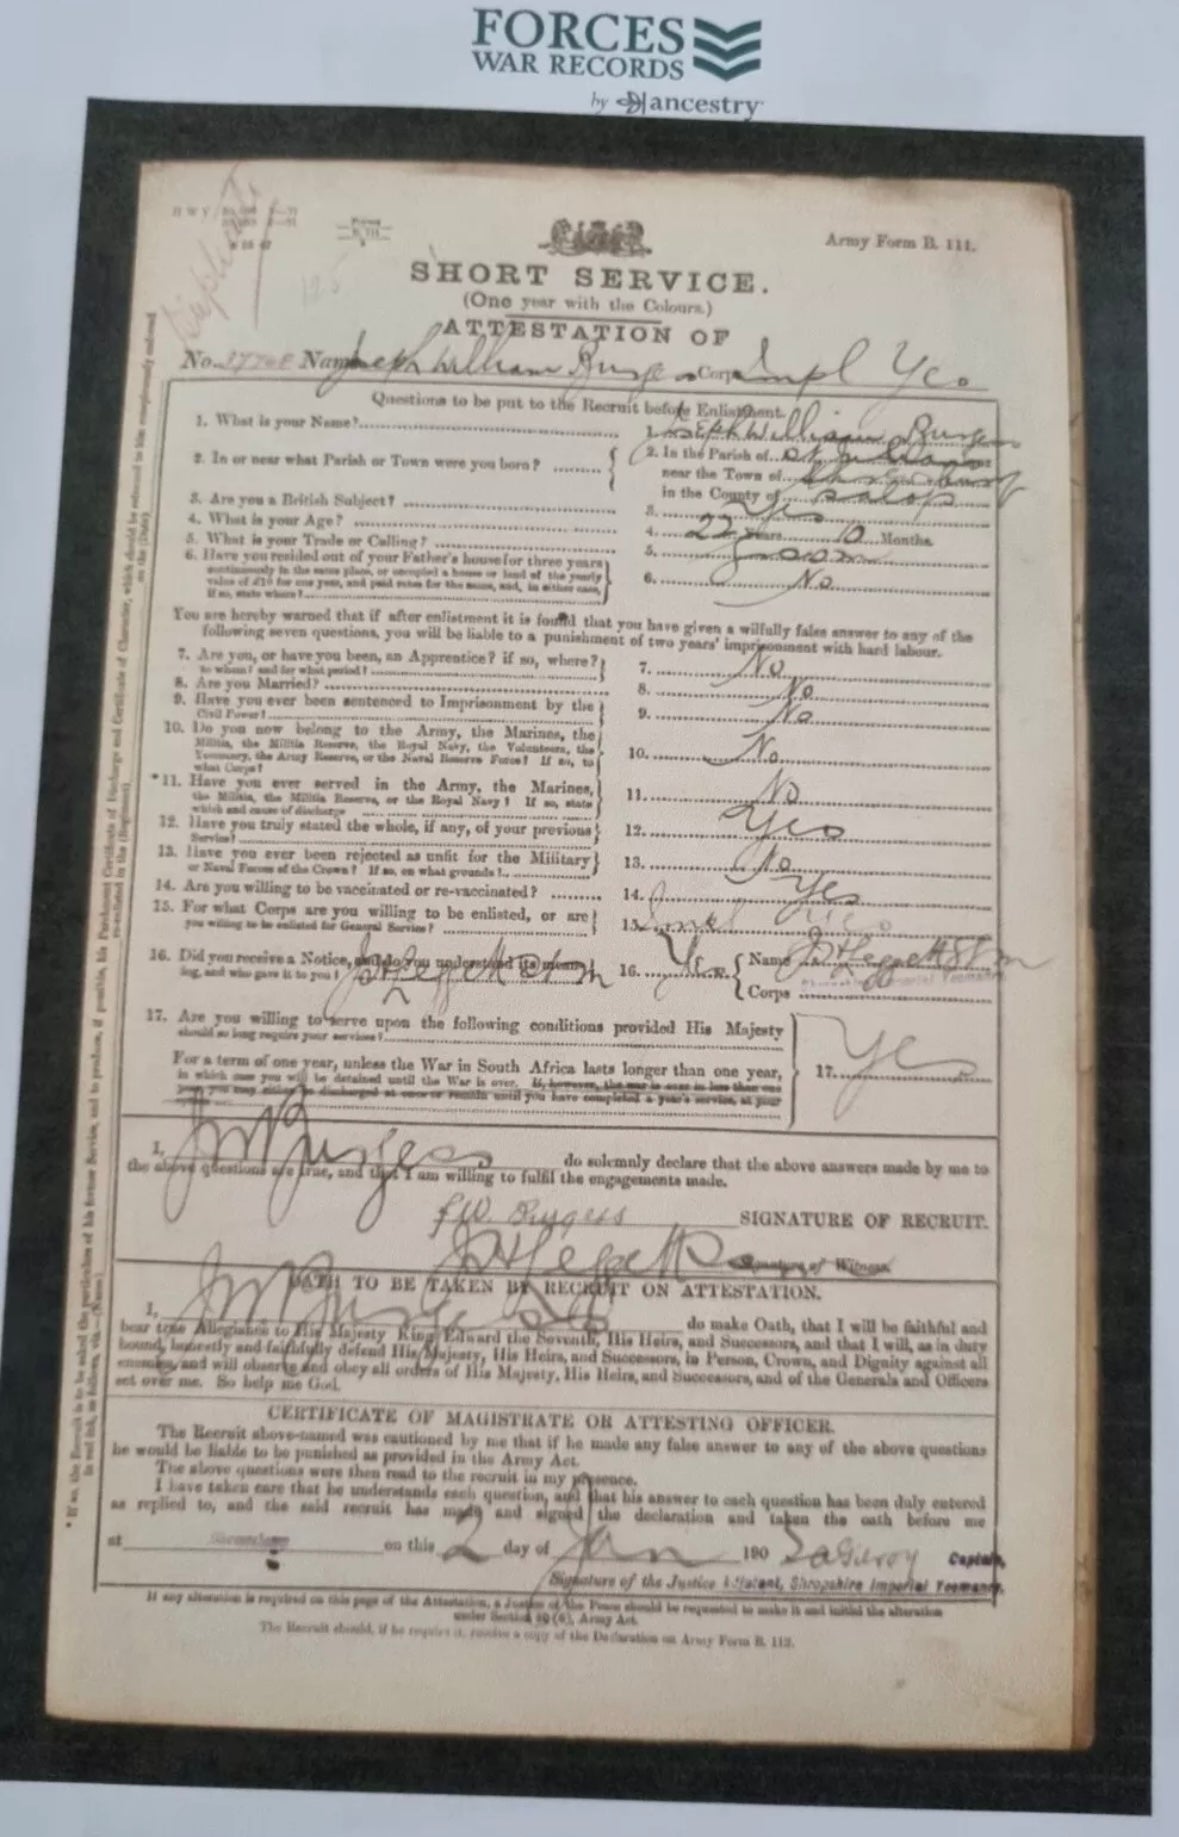 FORCES
WAR RECORDS
by ancestry
Army Form B. 111.
SHORT SERVICE.
(One year with the Colours.)
ATTESTATION OF
No. Name Joseph William Burgess Corps Impl Yeo
Questions to be put to the Recruit before Enlistment.
1. What is your Name? 1. Joseph William Burgess
2. In or near what Parish or Town were you born? 2. In the Parish of
near the Town of
in the County of Salop
3. Are you a British Subject? 3. Yes
4. What is your Age? 4. 22 Years 10 Months
5. What is your Trade or Calling? 5. Groom
6. Have you resided out of your Father's house for three years 6. No
continuously in the same place, or occupied a house or land of the yearly
value of £10 for one year, and paid rates for the same, and, in either case,
if so, state where?
You are hereby warned that if after enlistment it is found that you have given a wilfully false answer to any of the
following seven questions, you will be liable to a punishment of two years' imprisonment with hard labour.
7. Are you, or have you been, an Apprentice? if so, where? 7. No
to whom? and for what period?
8. Are you Married? 8. No
9. Have you ever been sentenced to Imprisonment by the 9. No
Civil Power?
10. Do you now belong to the Army, the Marines, the 10. No
Militia, the Militia Reserve, the Royal Navy, the Volunteers, the
Yeomanry, the Army Reserve, or the Naval Reserve Force? If so, to
what Corps?
*11. Have you ever served in the Army, the Marines, 11. No
the Militia, the Militia Reserve, or the Royal Navy? If so, state
which and cause of discharge
12. Have you truly stated the whole, if any, of your previous 12. Yes
Service?
13. Have you ever been rejected as unfit for the Military 13. No
or Naval Forces of the Crown? If so, on what grounds?
14. Are you willing to be vaccinated or re-vaccinated? 14. Yes
15. For what Corps are you willing to be enlisted, or are 15. Impl Yeo
you willing to be enlisted for General Service?
16. Did you receive a Notice, and do you understand its mean- 16. Yes Name J H Leggett
ing, and who gave it to you? J H Leggett Corps
17. Are you willing to serve upon the following conditions provided His Majesty
should so long require your services?
For a term of one year, unless the War in South Africa lasts longer than one year, 17. Yes
in which case you will be detained until the War is over. If, however, the war is over in less than one
year, you may either be discharged at once or remain until you have completed a year's service, at your
I, J W Burgess do solemnly declare that the above answers made by me to
the above questions are true, and that I am willing to fulfil the engagements made.
J.W. Burgess SIGNATURE OF RECRUIT.
J H Leggett Signature of Witness.
OATH TO BE TAKEN BY RECRUIT ON ATTESTATION.
I, J W Burgess do make Oath, that I will be faithful and
bear true Allegiance to His Majesty King Edward the Seventh, His Heirs, and Successors, and that I will, as in duty
bound, honestly and faithfully defend His Majesty, His Heirs, and Successors, in Person, Crown, and Dignity against all
enemies, and will observe and obey all orders of His Majesty, His Heirs, and Successors, and of the Generals and Officers
set over me. So help me God.
CERTIFICATE OF MAGISTRATE OR ATTESTING OFFICER.
The Recruit above-named was cautioned by me that if he made any false answer to any of the above questions
he would be liable to be punished as provided in the Army Act.
The above questions were then read to the recruit in my presence.
I have taken care that he understands each question, and that his answer to each question has been duly entered
as replied to, and the said recruit has made and signed the declaration and taken the oath before me
at on this 2 day of Jan 190 Captain,
Signature of the Justice Adjutant, Shropshire Imperial Yeomanry.
If any alteration is required on this page of the Attestation, a Justice of the Peace should be requested to make it and initial the alteration
under Section 80 (6), Army Act.
The Recruit should, if he require it, receive a copy of the Declaration on Army Form B. 112.